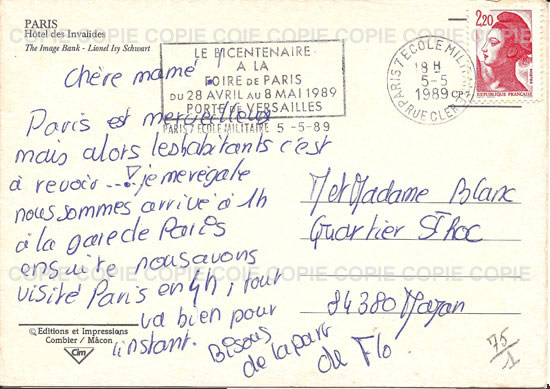 PARIS
Hôtel des Invalides
The Image Bank - Lionel Isy Schwart
LE BICENTENAIRE
A LA
FOIRE DE PARIS
DU 28 AVRIL AU 8 MAI 1989
PORTE DE VERSAILLES
PARIS 7 ECOLE MILITAIRE 5-5-89
PARIS 7 ECOLE MILITAIRE
18 H
5-5
1989
R. CLER
2,20
REPUBLIQUE FRANÇAISE
Chère mamé !
Paris est merveilleux
mais alors les habitants c'est
à revoir ...! je me régale
nous sommes arrivé à 1h
à la gare de Paris
ensuite nous avons
visité Paris en 4h, tout
va bien pour
l'instant.
Bisous
de la part
de Flo.
M et Madame Blanc
Quartier St Roc
84380 Mazan
75
1
© Editions et Impressions
Combier / Mâcon
Cim
COPIE COPIE COPIE COPIE COPIE COPIE
COPIE COPIE COPIE COPIE COPIE COPIE